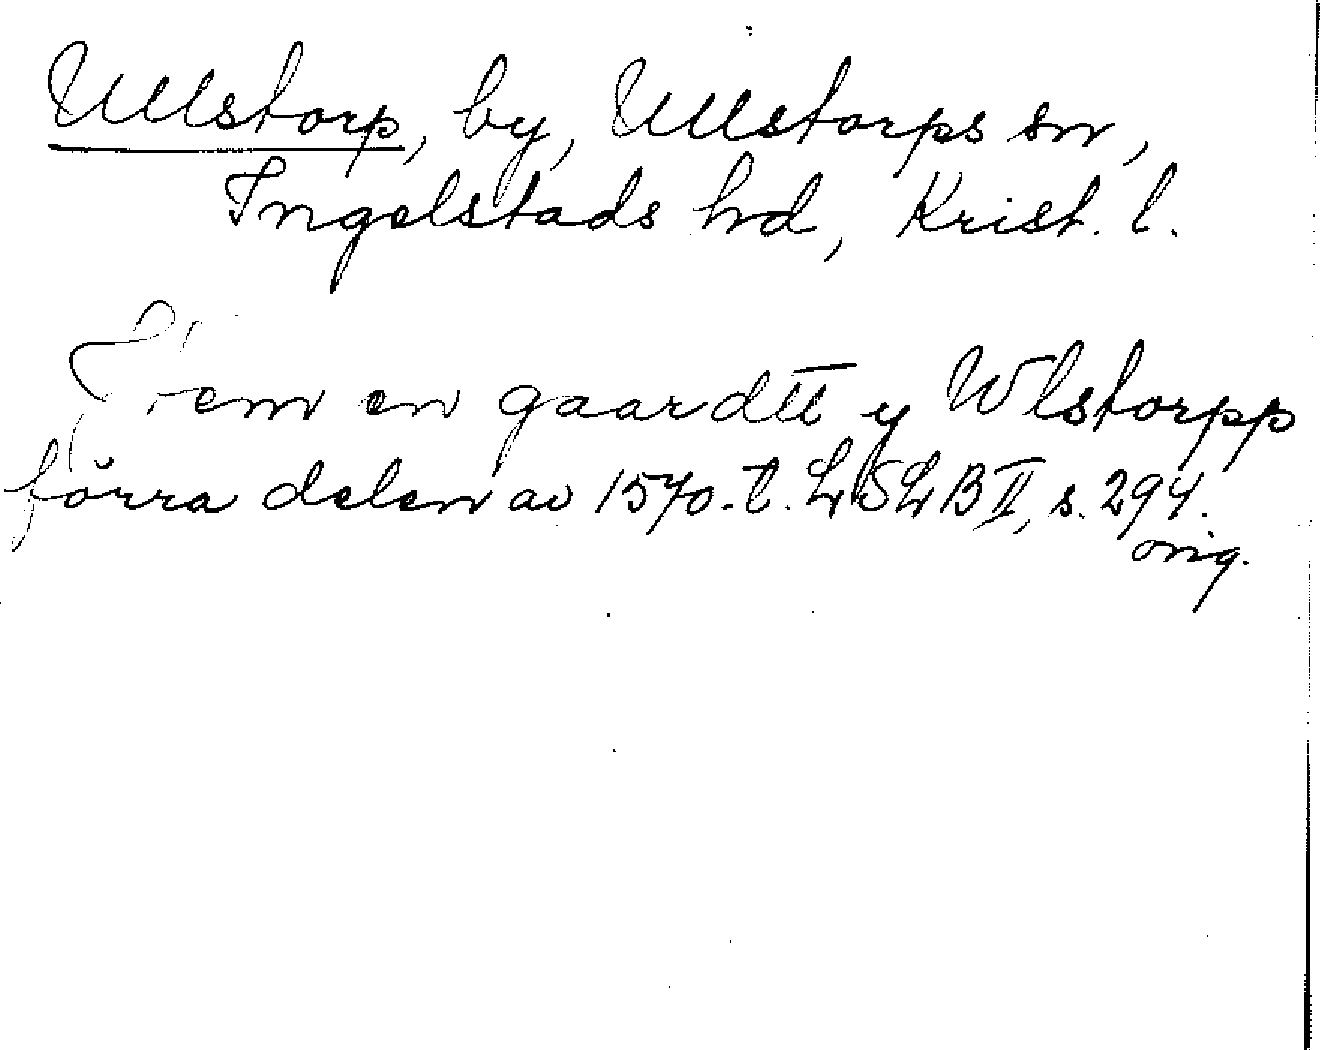 Ullstorp, by, Ullstorps sn,
Ingelstads hd, Krist. l.
Item en gaardtt y Wlstorpp
förra delen av 1570-t. LSLB II, s. 294.
orig.